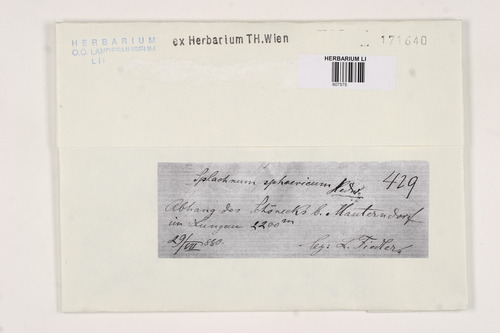 HERBARIUM
O.Ö. LANDESMUSEUM
LI
ex Herbarium TH.Wien
171640
HERBARIUM LI
Splachnum sphaericum Hedw. 429
Abhang des b. Mauterndorf
im Lungau 2200 m
29/VII 880. leg: L. Fiedler